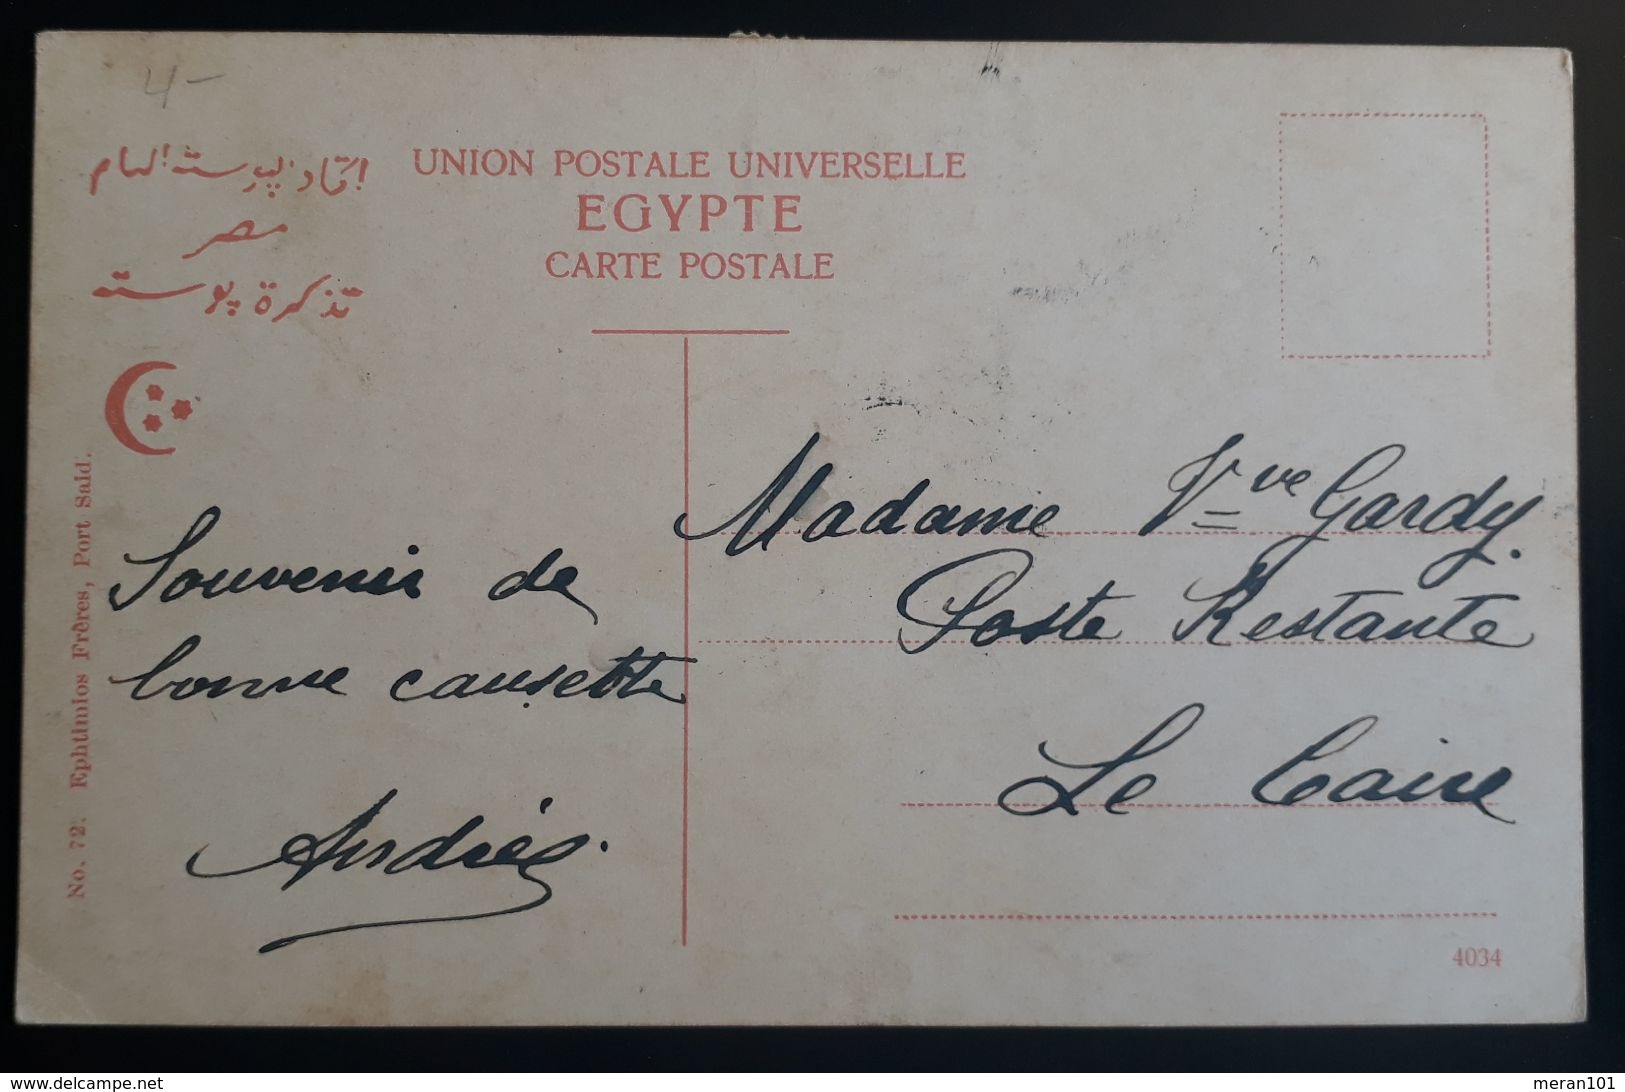 4-
اتحاد البوسته العام
مصر
تذكرة بوسته
UNION POSTALE UNIVERSELLE
EGYPTE
CARTE POSTALE
No. 72. Ephtimios Frères, Port Said.
Souvenir de
bonne causette
Andrés.
Madame Vve Gardy.
Poste Restante
Le Caire
4034
www.delcampe.net
meran101